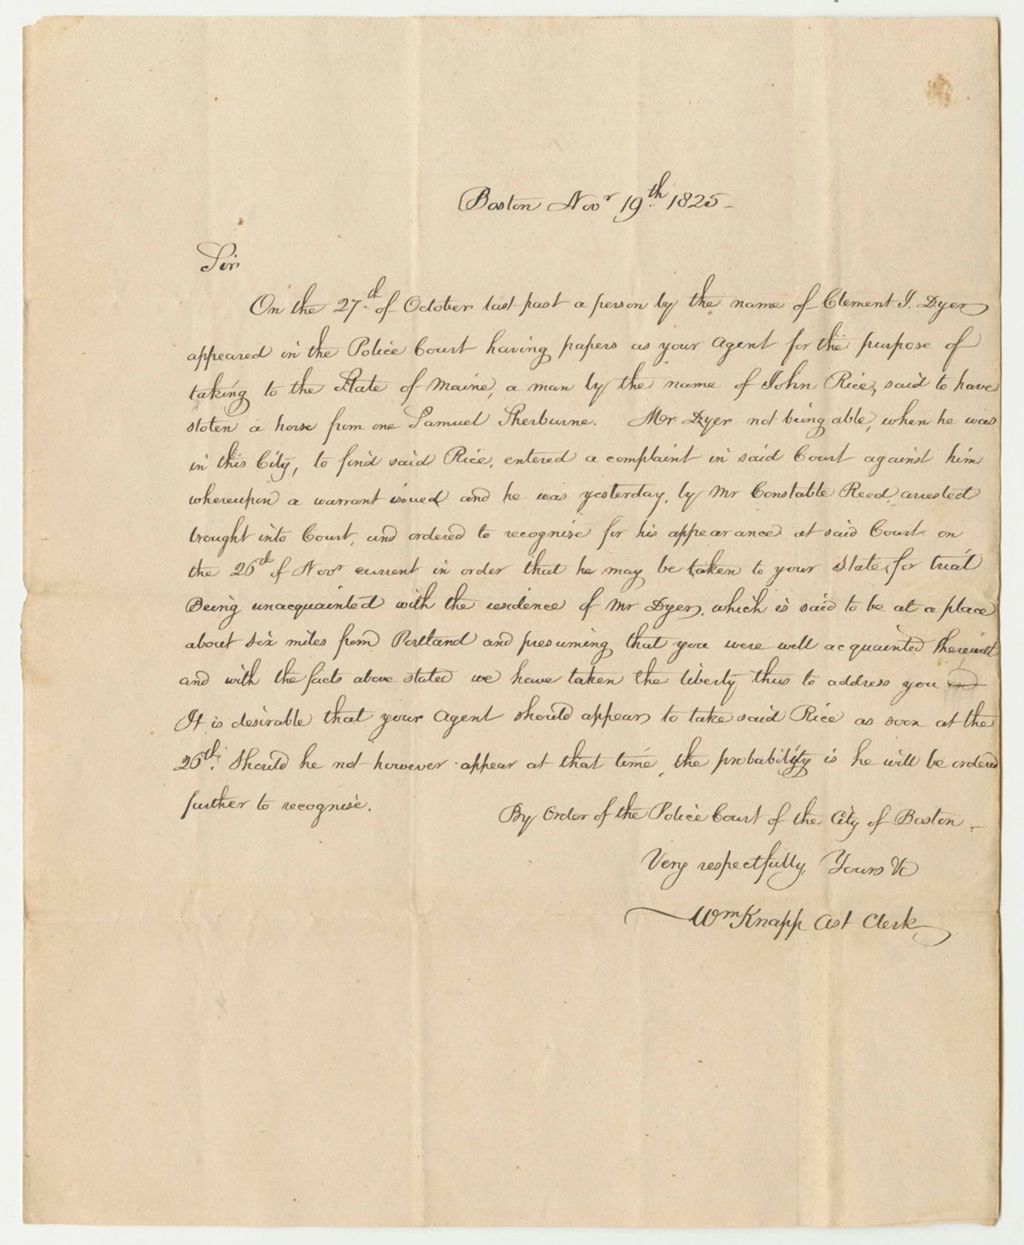 Boston Novr 19th 1825 -
Sir
On the 27th of October last past a person by the name of Clement J. Dyer
appeared in the Police Court having papers as your agent for the purpose of
taking to the State of Maine, a man by the name of John Rice, said to have
stolen a horse from one Samuel Sherburne. Mr Dyer not being able, when he was
in this City, to find said Rice, entered a complaint in said Court against him
whereupon a warrant issued and he was yesterday, by Mr Constable Reed, arrested
brought into Court, and ordered to recognise for his appearance at said Court on
the 26th of Novr current in order that he may be taken to your State, for trial
Being unacquainted with the residence of Mr Dyer, which is said to be at a place
about six miles from Portland and presuming that you were well acquainted therewith
and with the facts above stated we have taken the liberty thus to address you
It is desirable that your agent should appear to take said Rice as soon as the
26th. Should he not however appear at that time, the probability is he will be ordered
further to recognise.
By Order of the Police Court of the City of Boston.
Very respectfully Yours &c
Wm Knapp Ast Clerk